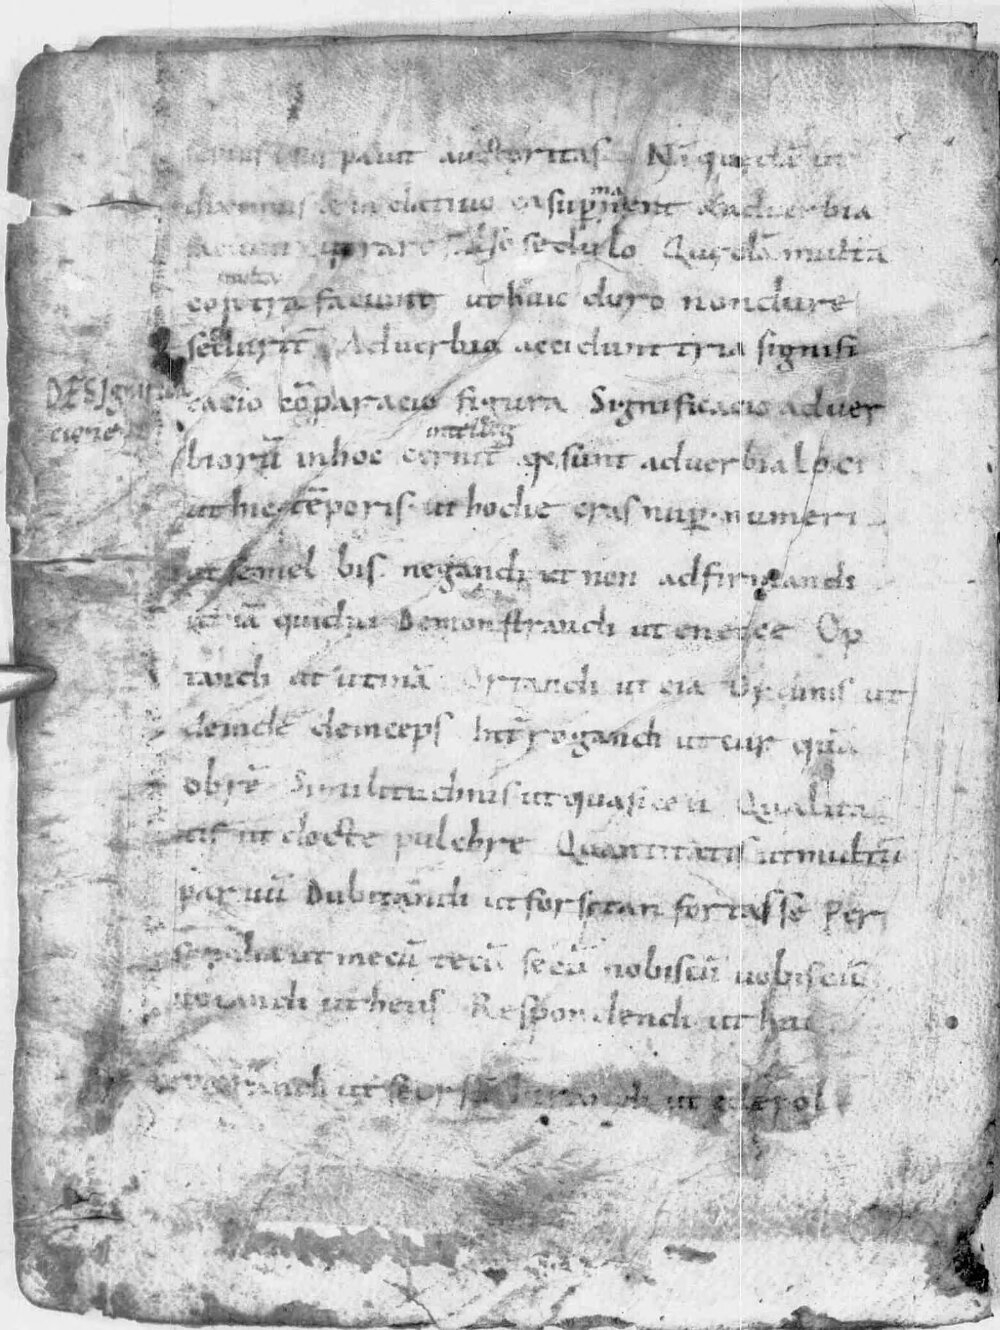 usurpauit auctoritas Nā quędā ut
diximus ablatiuo casu ꝑmanent aduerbia
sedulo Quędā multa
multa
contra faciunt ut huic duro non dure
sed durit̄ Aduerbio accidunt tria signifi
DE Significa
cione
cacio cōparacio figura Significacio aduer
intelleg
biorū in hoc cernit̄ qe sunt aduerbia loci
ut hic tēporis ut hodie cras nuꝑ numeri
ut semel bis negandi ut non adfirmandi
ut &iā quidni Demonstrandi ut en ecce Op
tandi ut utinā Ortandi ut eia Ordinis ut
deinde deinceps Int̄rogandi ut cur quā
obrē Similitudinis ut quasi ceu Qualita
tis ut docte pulchre Quantitatis ut multū
paruū Dubitandi ut forsitan fortasse Per
sonalia ut mecū tecū secū nobiscū uobiscū
uocandi ut heus Respondendi ut heu
ut seorsū ut edepol